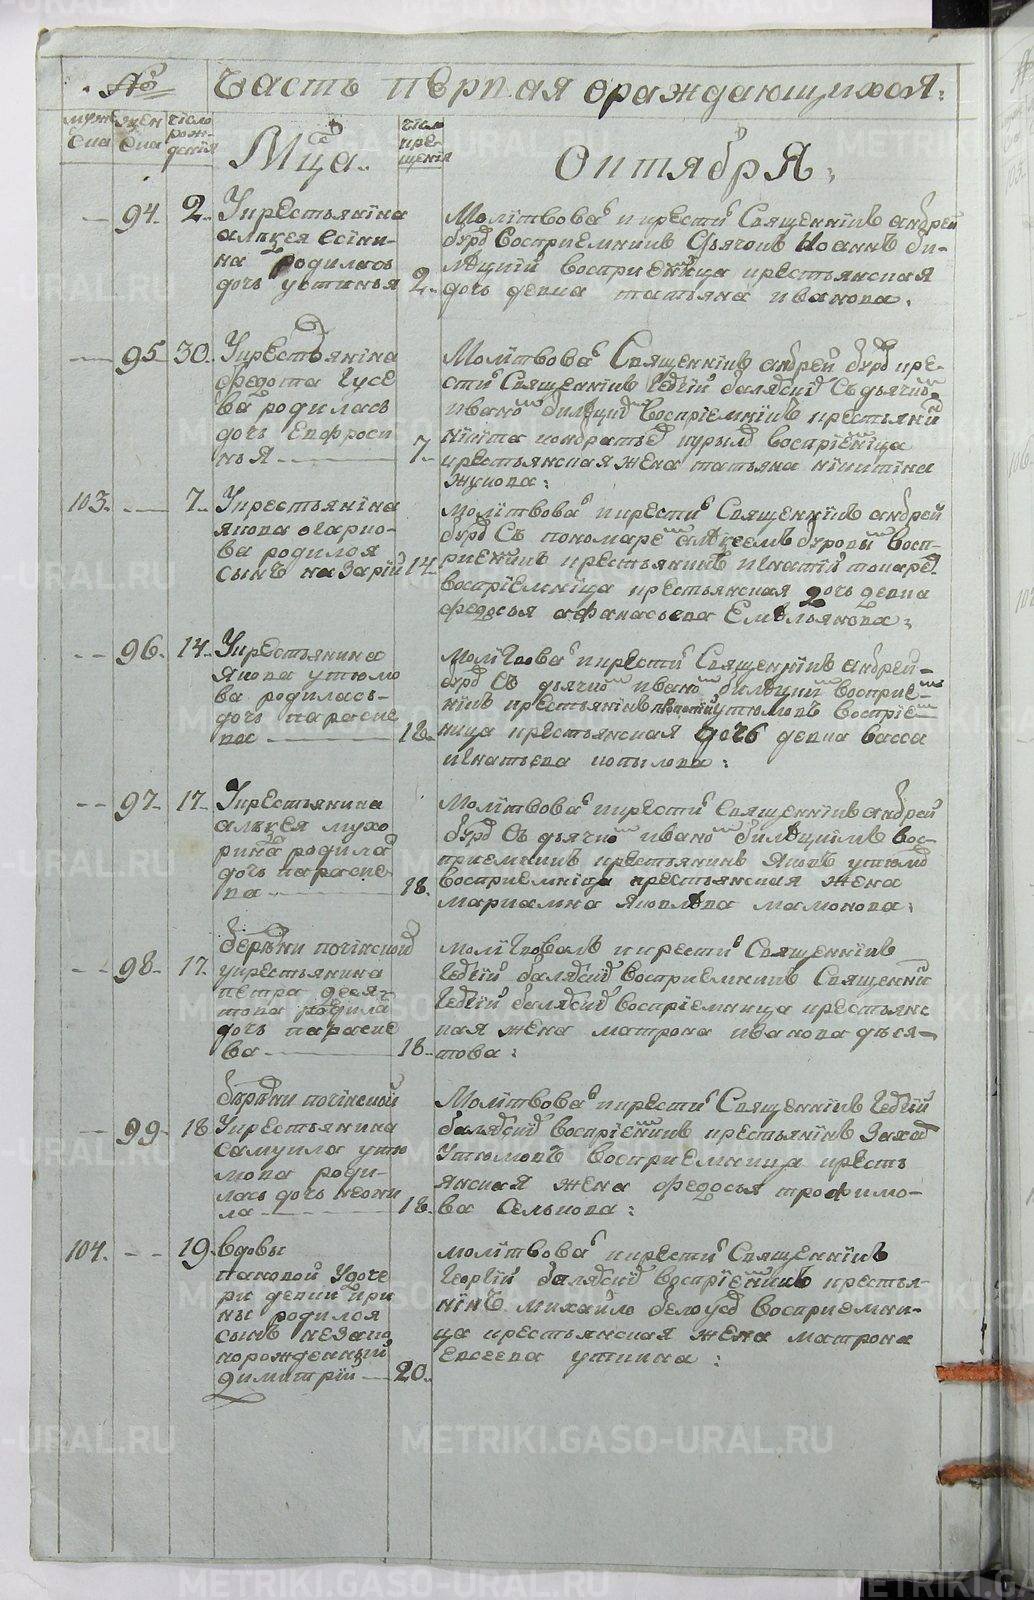 № Часть первая ораждающихся:
муж еска жен еска число рож- дения Мца. число кре- щения Октября:
94. 2. Укрестьянина
алексея есіпи-
на родилась
дочь устинья 2.
Молітвова и крести Священникъ андрей
бурд Восприемникъ Дьячокъ Иоаннъ би-
лецкій восприемница крестьянская
дочь девка татьяна иванова.
95 30. Укрестьянина
федота Гусе
ва родилась
дочь Евфроси
нья 7.
Молітвова Священникъ андрей бурд кре-
сти Священникъ
Никита кондратьев восприемница
крестьянская жена татьяна нікитіна
жукова:
103. 7. Укрестьянина
якова
ва родился
сынъ назарій 14.
молітвова и крести Священникъ андрей
бурд Съ пономаре алексеемъ буровы восп-
риемникъ крестьянинъ игнатій токарев
восприемница крестьянская дочь девка
федосья афанасьева Емельянова:
96. 14. Укрестьянина
якова утюмо
ва родилась
дочь параске
ва 18.
молітвова и крести Священникъ андрей
бурд Съ дьячко ивано билецкій восприе-
никъ крестьянинъ утюмовъ восприем
ница крестьянская дочь девка васса
игнатьева копылова:
97. 17. Укрестьянина
алексея мухо
рина родила
дочь параске
ва 18.
Молітвова и крести Священникъ андрей
бурд Съ дьячко ивано билецкімъ вос-
приемникъ крестьянинъ яковъ утюмов
восприемница крестьянская жена
мариамна яковлева мамонова:
98. 17. дерени почінской
укрестьянина
петра деся-
това родила
дочь параске
ва 18.
молітвовалъ и крести Священникъ
Георгій восприемникъ Священни
Георгій восприемница крестьянс
кая жена матрона иванова деся-
това:
99. 18 дерени почінской
Укрестьянина
самуила утю
мова роди-
лась дочь неони
ла 18.
Молітвова и крести Священникъ Георгій
восприемникъ крестьянинъ Захар
Утюмовъ восприемница кресть
янская жена федосья трофимо-
ва Селькова:
104. 19. вдовы
пановой у доче
ри девки ири
ны родился
сынъ незако
норожденный
димитрій 20.
молітвова и крести Священникъ
Георгій восприемникъ крестья-
нінъ михайло белоусов восприемни-
ца крестьянская жена матрона
Евсеева уткина:
METRIKI.GASO-URAL.RU